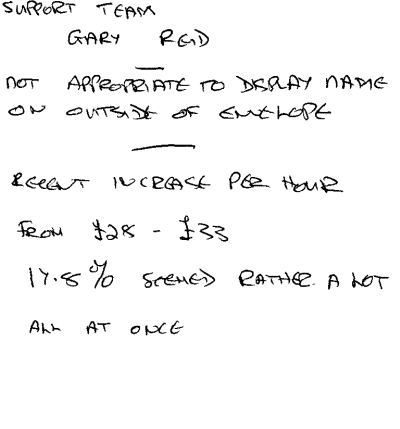 SUPPORT TEAM
GARY REID
NOT APPROPRIATE TO DISPLAY NAME
ON OUTSIDE OF ENVELOPE
RECENT INCREASE PER HOUR
FROM £28 - £33
17.8% SEEMED RATHER A LOT
ALL AT ONCE